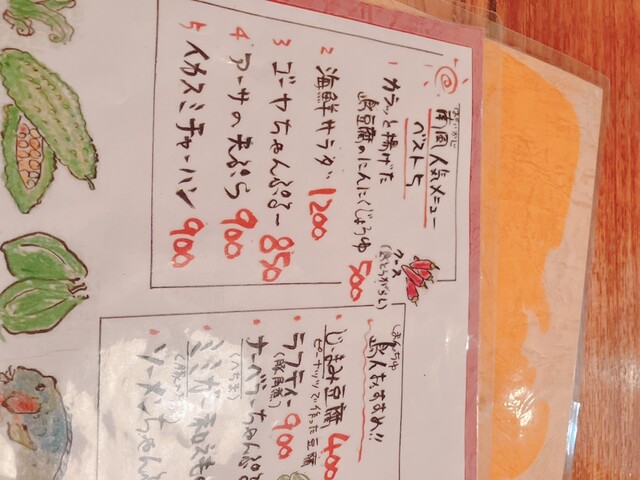 南風人気メニュー
ベスト5
1 カラッと揚げた
島豆腐のにんにくじょうゆ 500
2 海鮮サラダ 1200
3 ゴーヤちゃんぷるー 850
4 アーサの天ぷら 900
5 イカスミチャーハン 900
(島とうがらし)
島人おすすめ!!
・じーまみ豆腐 400
ピーナッツで作った豆腐
・ラフティー 900
(豚角煮)
・ナーベラーちゃんぷる
(へちま)
・ミミガー和えもの
・ソーメンちゃんぷ